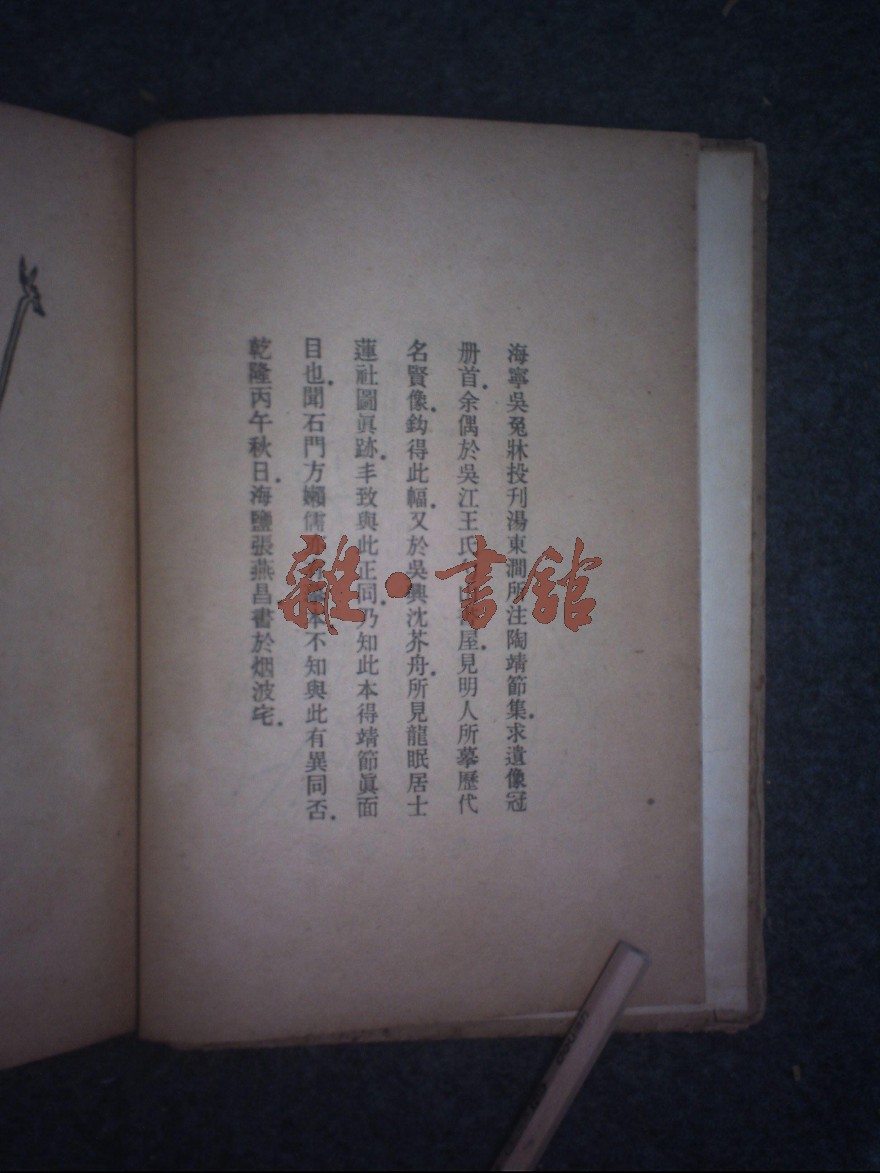 海寧吳兔牀投刋湯東澗所注陶靖節集.求遺像冠
册首.余偶於吳江王氏屋.見明人所摹歷代
名賢像.鈎得此幅.又於吳興沈芥舟.所見龍眠居士
蓮社圖眞跡.丰致與此正同.乃知此本得靖節眞面
目也.聞石門方嬾儒本不知與此有異同否.
乾隆丙午秋日.海鹽張燕昌書於烟波宅.
雜·書館